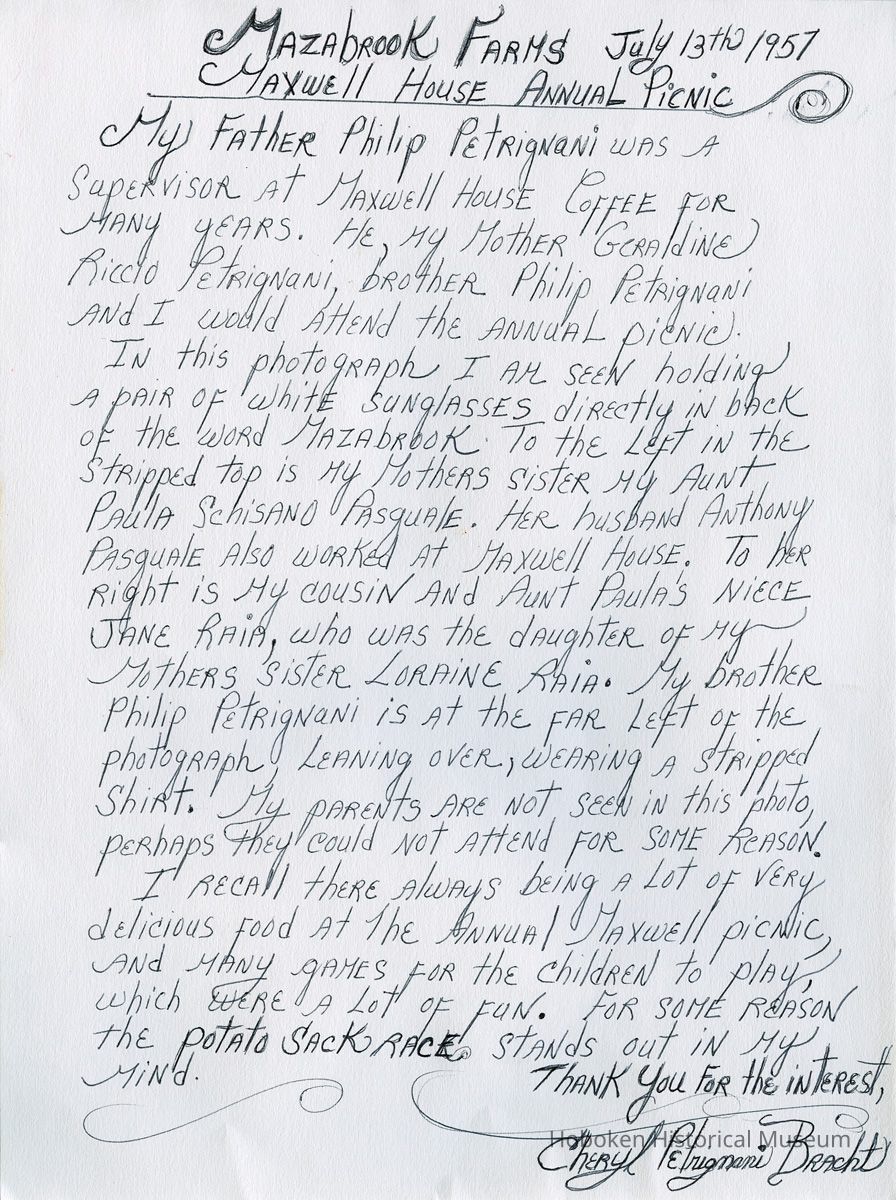 Mazabrook Farms July 13th 1957
Maxwell House Annual Picnic
My Father Philip Petrignani was a
Supervisor at Maxwell House Coffee for
many years. He, my Mother Geraldine
Riccio Petrignani, brother Philip Petrignani
and I would attend the annual picnic.
In this photograph I am seen holding
a pair of white sunglasses directly in back
of the word Mazabrook. To the left in the
stripped top is my Mothers sister my Aunt
Paula Schisano Pasquale. Her husband Anthony
Pasquale also worked at Maxwell House. To her
right is my cousin and Aunt Paula's niece
Jane Raia, who was the daughter of my
Mothers sister Loraine Raia. My brother
Philip Petrignani is at the far left of the
photograph, leaning over, wearing a stripped
shirt. My parents are not seen in this photo,
perhaps they could not attend for some reason.
I recall there always being a lot of very
delicious food at the Annual Maxwell picnic,
and many games for the children to play,
which were a lot of fun. For some reason
the potato sack race stands out in my
mind.
Thank you for the interest,
Cheryl Petrignani Bracht
Hoboken Historical Museum